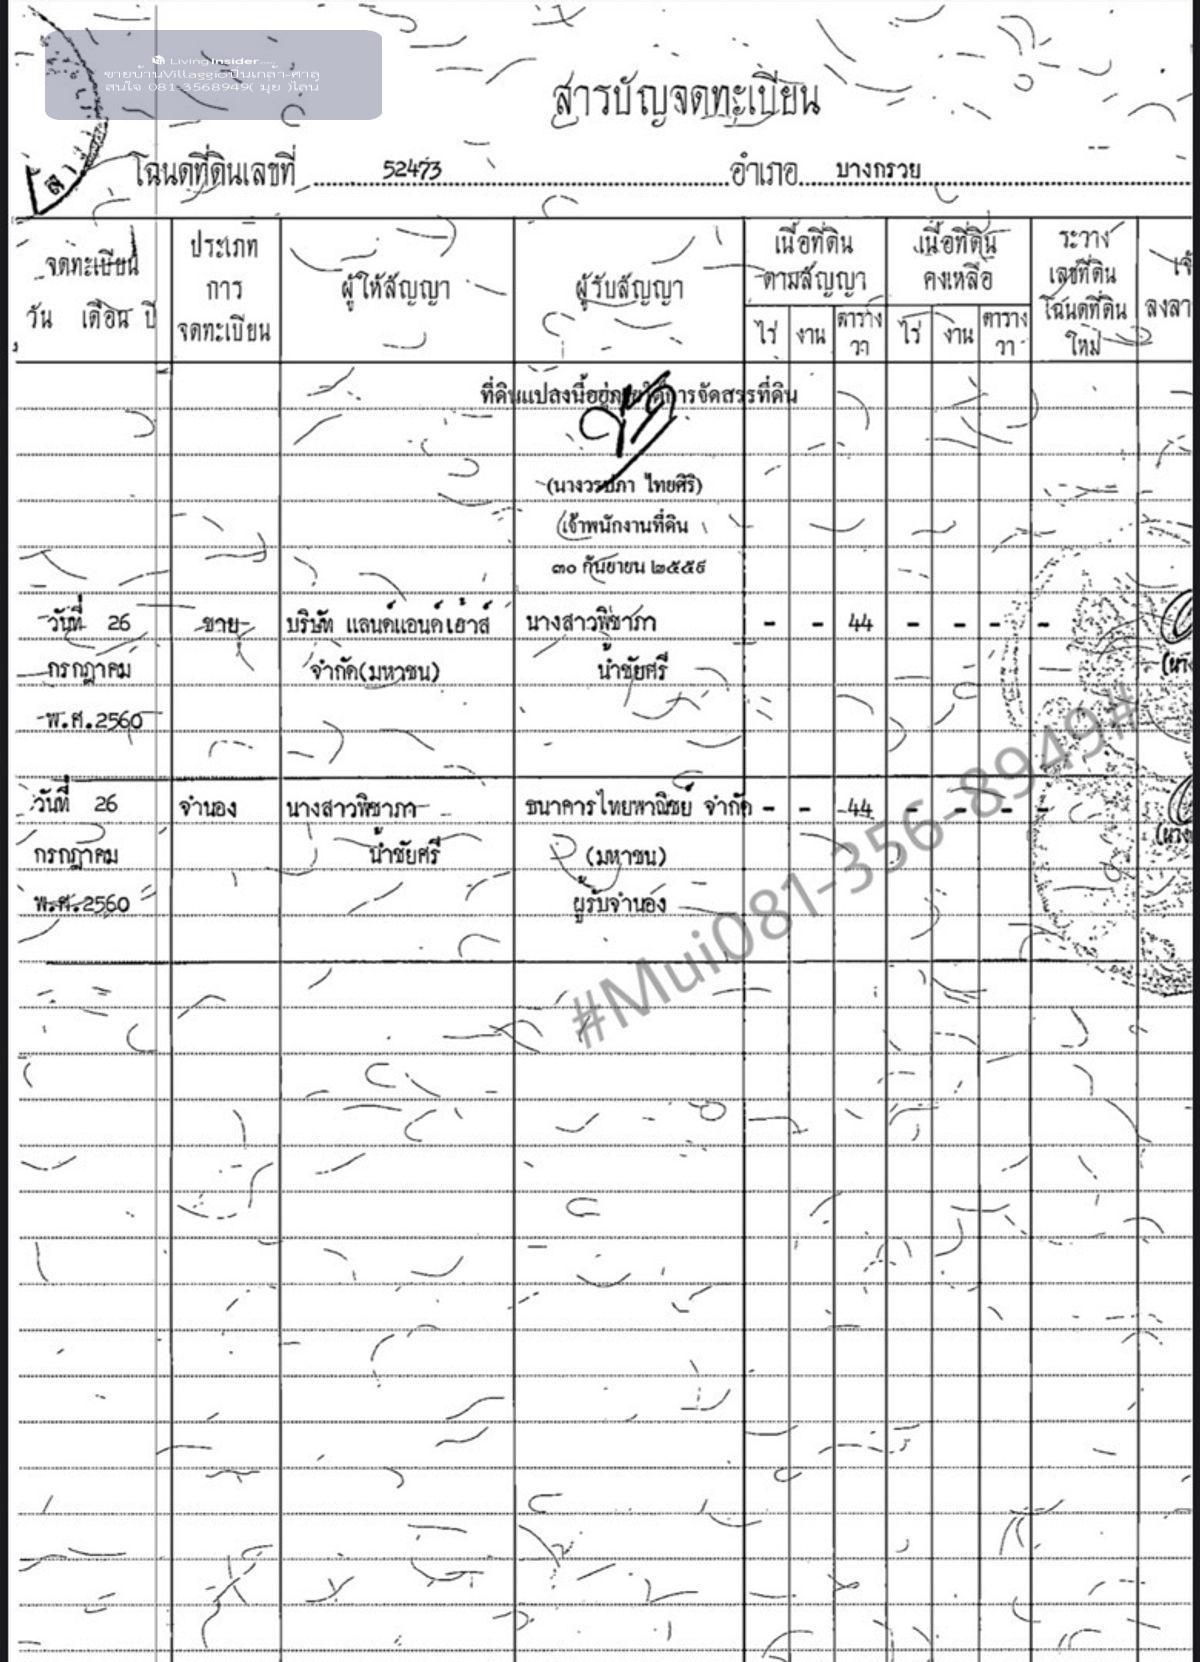 LivingInsider
ขายบ้านVillaggioปิ่นเกล้า-ศาลา
สนใจ 081-3568949( มุย )ไลน์
สารบัญจดทะเบียน
โฉนดที่ดินเลขที่ 52473 อำเภอ บางกรวย
จดทะเบียน
วัน เดือน ปี
ประเภท
การ
จดทะเบียน
ผู้ให้สัญญา
ผู้รับสัญญา
เนื้อที่ดิน
ตามสัญญา
ไร่ งาน ตาราง
วา
เนื้อที่ดิน
คงเหลือ
ไร่ งาน ตาราง
วา
ระวาง
เลขที่ดิน
โฉนดที่ดิน
ใหม่
ที่ดินแปลงนี้อยู่ภายใต้การจัดสรรที่ดิน
ไทยศิริ)
เจ้าพนักงานที่ดิน
๓๐ กันยายน ๒๕๕๙
วันที่ 26 ขาย บริษัท แลนด์แอนด์เฮ้าส์ นางสาวพิชาภา - - 44 - - - -
กรกฎาคม จำกัด(มหาชน) น้ำชัยศรี
พ.ศ.2560
วันที่ 26 จำนอง นางสาวพิชาภา ธนาคารไทยพาณิชย์ จำกัด - - 44 - - - -
กรกฎาคม น้ำชัยศรี (มหาชน)
พ.ศ.2560 ผู้รับจำนอง
#Mui081-356-8949#